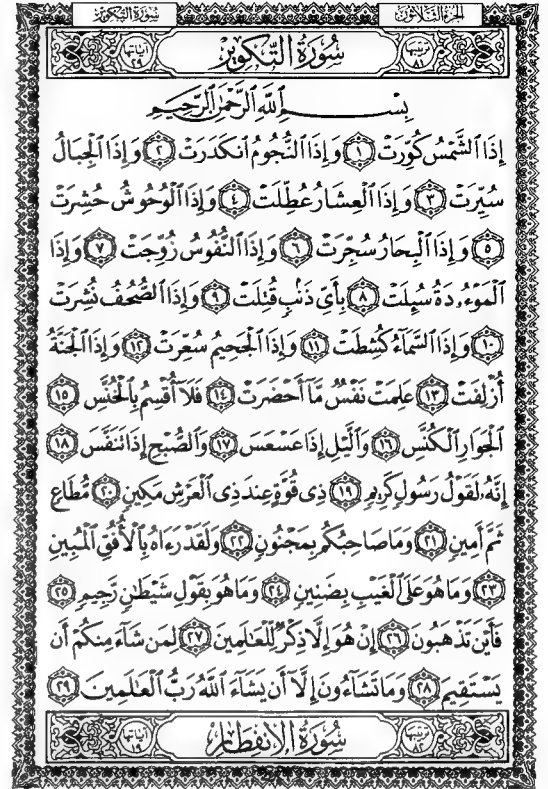 الجزء الثلاثون سورة التكوير
ترتيبها ٨١ سورة التكوير آياتها ٢٩
بِسْمِ اللَّهِ الرَّحْمَٰنِ الرَّحِيمِ
إِذَا ٱلشَّمْسُ كُوِّرَتْ ١ وَإِذَا ٱلنُّجُومُ ٱنكَدَرَتْ ٢ وَإِذَا ٱلْجِبَالُ
سُيِّرَتْ ٣ وَإِذَا ٱلْعِشَارُ عُطِّلَتْ ٤ وَإِذَا ٱلْوُحُوشُ حُشِرَتْ
٥ وَإِذَا ٱلْبِحَارُ سُجِّرَتْ ٦ وَإِذَا ٱلنُّفُوسُ زُوِّجَتْ ٧ وَإِذَا
ٱلْمَوْءُۥدَةُ سُئِلَتْ ٨ بِأَىِّ ذَنۢبٍ قُتِلَتْ ٩ وَإِذَا ٱلصُّحُفُ نُشِرَتْ
١٠ وَإِذَا ٱلسَّمَآءُ كُشِطَتْ ١١ وَإِذَا ٱلْجَحِيمُ سُعِّرَتْ ١٢ وَإِذَا ٱلْجَنَّةُ
أُزْلِفَتْ ١٣ عَلِمَتْ نَفْسٌ مَّآ أَحْضَرَتْ ١٤ فَلَآ أُقْسِمُ بِٱلْخُنَّسِ ١٥
ٱلْجَوَارِ ٱلْكُنَّسِ ١٦ وَٱلَّيْلِ إِذَا عَسْعَسَ ١٧ وَٱلصُّبْحِ إِذَا تَنَفَّسَ ١٨
إِنَّهُۥ لَقَوْلُ رَسُولٍ كَرِيمٍ ١٩ ذِى قُوَّةٍ عِندَ ذِى ٱلْعَرْشِ مَكِينٍ ٢٠ مُّطَاعٍ
ثَمَّ أَمِينٍ ٢١ وَمَا صَاحِبُكُم بِمَجْنُونٍ ٢٢ وَلَقَدْ رَءَاهُ بِٱلْأُفُقِ ٱلْمُبِينِ
٢٣ وَمَا هُوَ عَلَى ٱلْغَيْبِ بِضَنِينٍ ٢٤ وَمَا هُوَ بِقَوْلِ شَيْطَٰنٍ رَّجِيمٍ ٢٥
فَأَيْنَ تَذْهَبُونَ ٢٦ إِنْ هُوَ إِلَّا ذِكْرٌ لِّلْعَٰلَمِينَ ٢٧ لِمَن شَآءَ مِنكُمْ أَن
يَسْتَقِيمَ ٢٨ وَمَا تَشَآءُونَ إِلَّآ أَن يَشَآءَ ٱللَّهُ رَبُّ ٱلْعَٰلَمِينَ ٢٩
ترتيبها ٨٢ سورة الانفطار آياتها ١٩